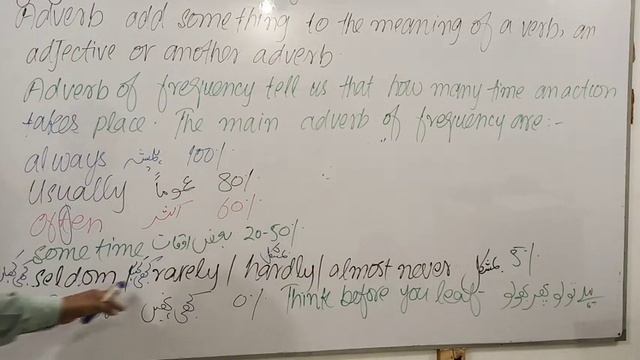 Adverb add something to the meaning of a verb, an
adjective or another adverb
Adverb of frequency tell us that how many time an action
takes place. The main adverb of frequency are:-
always ہمیشہ 100%
Usually عموماً 80%
often اکثر 60%
sometime بعض اوقات 20-50%
seldom / rarely / hardly / almost never 5%
کبھی نہیں 0% Think before you leaf- پہلے تولو پھر بولو